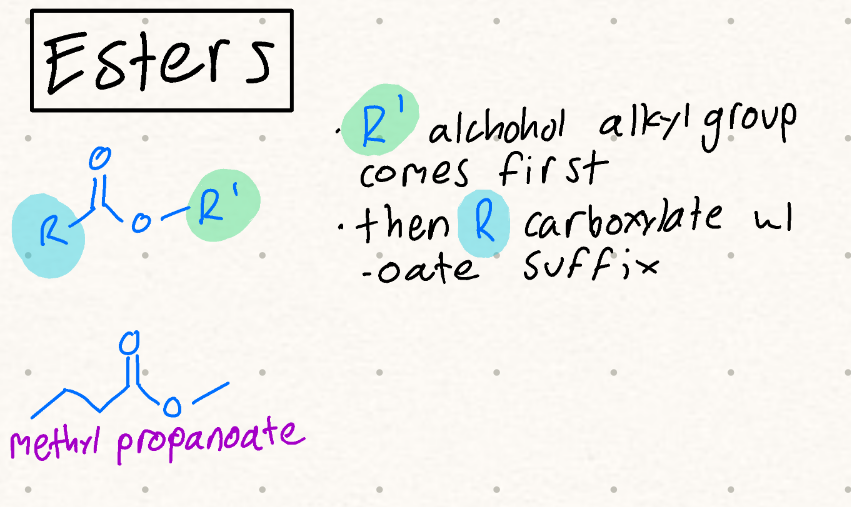 Esters
· R' alchohol alkyl group
comes first
· then R carboxylate w/
-oate suffix
O
R O R'
O
O
methyl propanoate